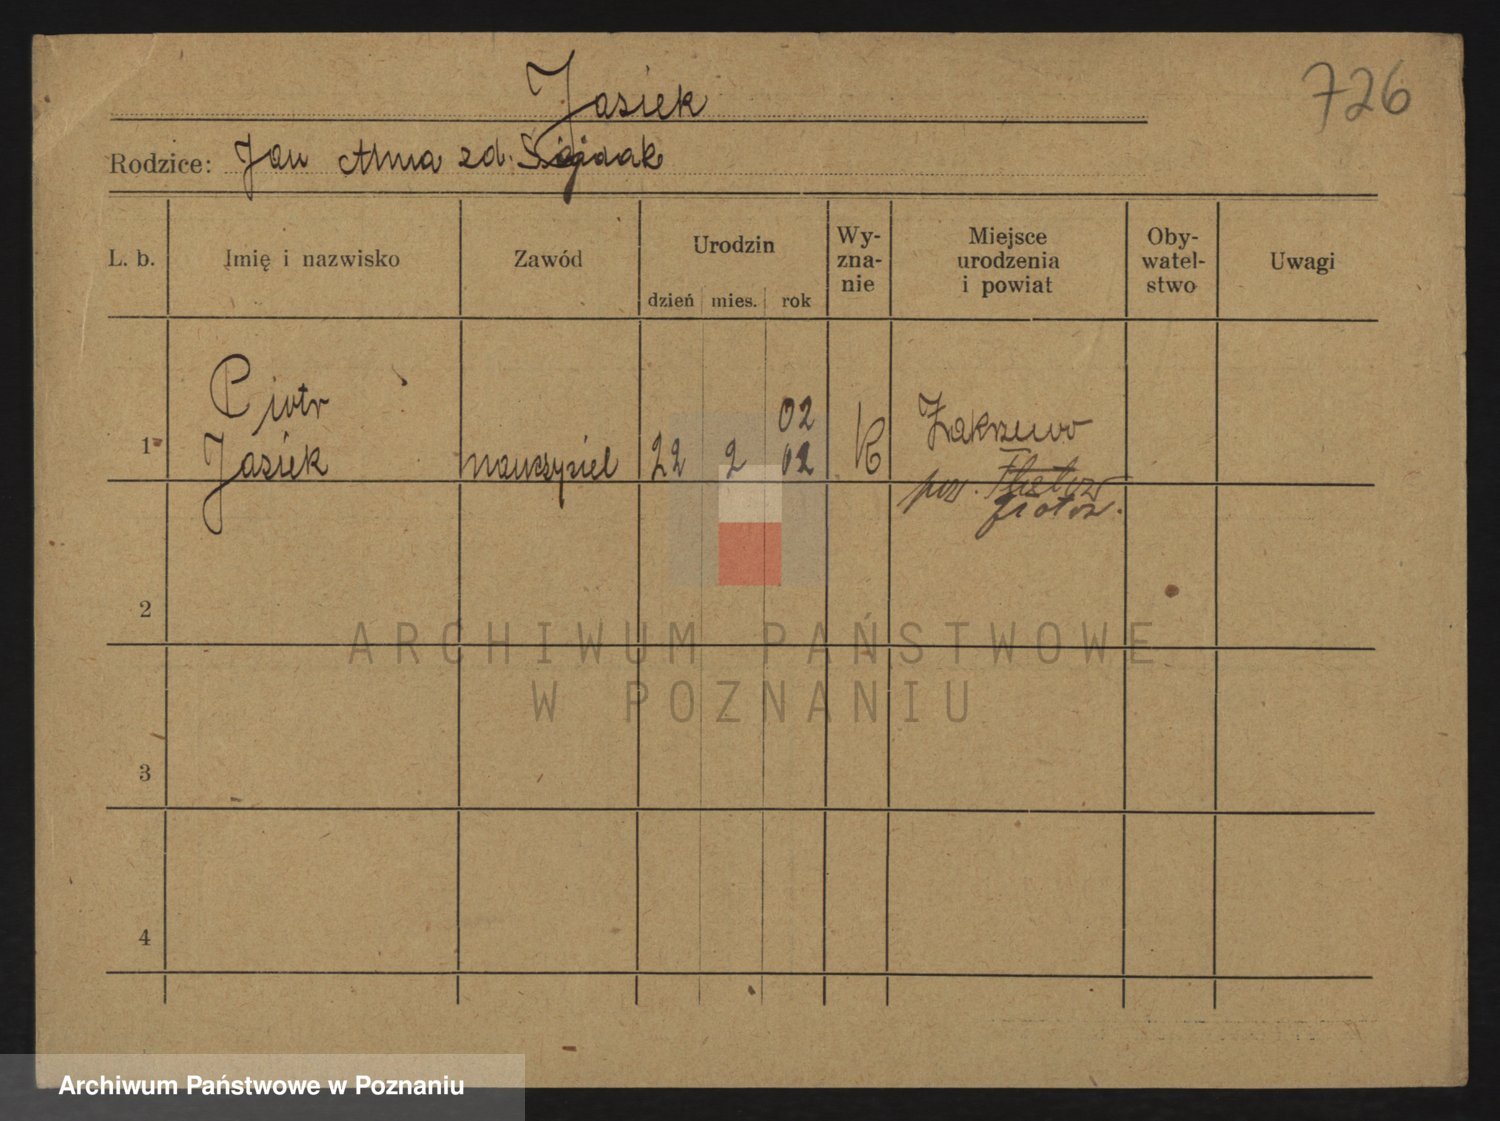 726
Jasiek
Rodzice: Jan Anna zd.
L. b.
Imię i nazwisko
Zawód
Urodzin
dzień mies. rok
Wy-
zna-
nie
Miejsce
urodzenia
i powiat
Oby-
watel-
stwo
Uwagi
1
Piotr
Jasiek
nauczyciel
22
2
02
02
K
Zakrzewo
pow. Flatow
Złotów.
2
3
4
ARCHIWUM PAŃSTWOWE
W POZNANIU
Archiwum Państwowe w Poznaniu